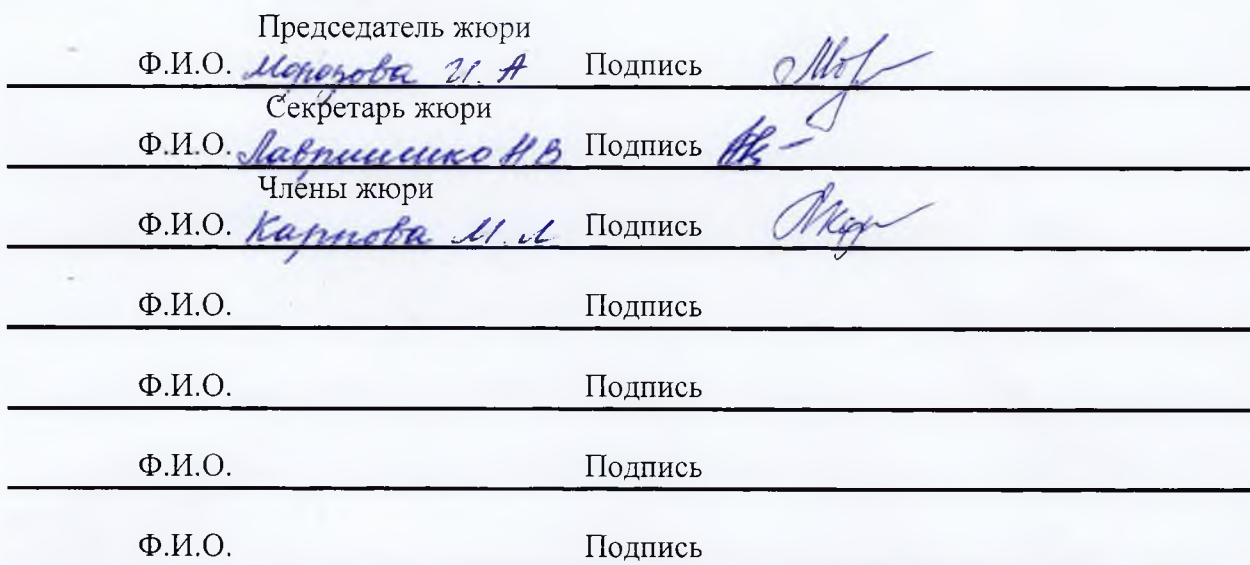 Председатель жюри
Ф.И.О. Морозова И. А Подпись
Секретарь жюри
Ф.И.О. Н В Подпись
Члены жюри
Ф.И.О. Карпова М. Л Подпись
Ф.И.О. Подпись
Ф.И.О. Подпись
Ф.И.О. Подпись
Ф.И.О. Подпись